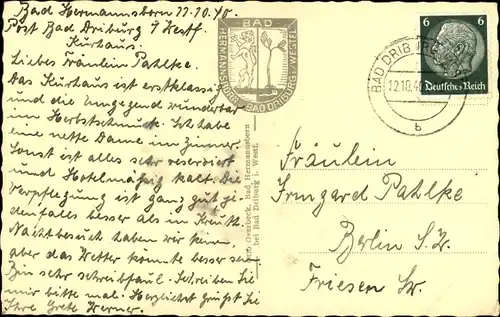 Bad Hermannsborn 11.10.40.
Post Bad Driburg i/Westf.
Kurhaus.
Liebes Fräulein Pahlke.
Das Kurhaus ist erstklassig
und die Umgegend wunderbar
im Herbstschmuck. Ich habe
eine nette Dame im Zimmer.
Sonst ist alles sehr reserviert
und Hotelmäßig kalt. Die
Verpflegung ist ganz gut je-
denfalls besser als in Kreuth.
Nachtbesuch haben wir keinen,
aber das Wetter könnte besser sein.
Bin sehr schreibfaul. Schreiben Sie
mir bitte mal. Herzlichst grüßt Sie
Ihre Grete Werner.
BAD
HERMANNSBORN
BAD DRIBURG I/WESTF.
Overbeck, Bad Hermannsborn
bei Bad Driburg i. Westf.
6 6
Deutsches Reich
BAD DRIBURG
12.10.40
b
Fräulein
Irmgard Pahlke
Berlin S.W.
Friesen